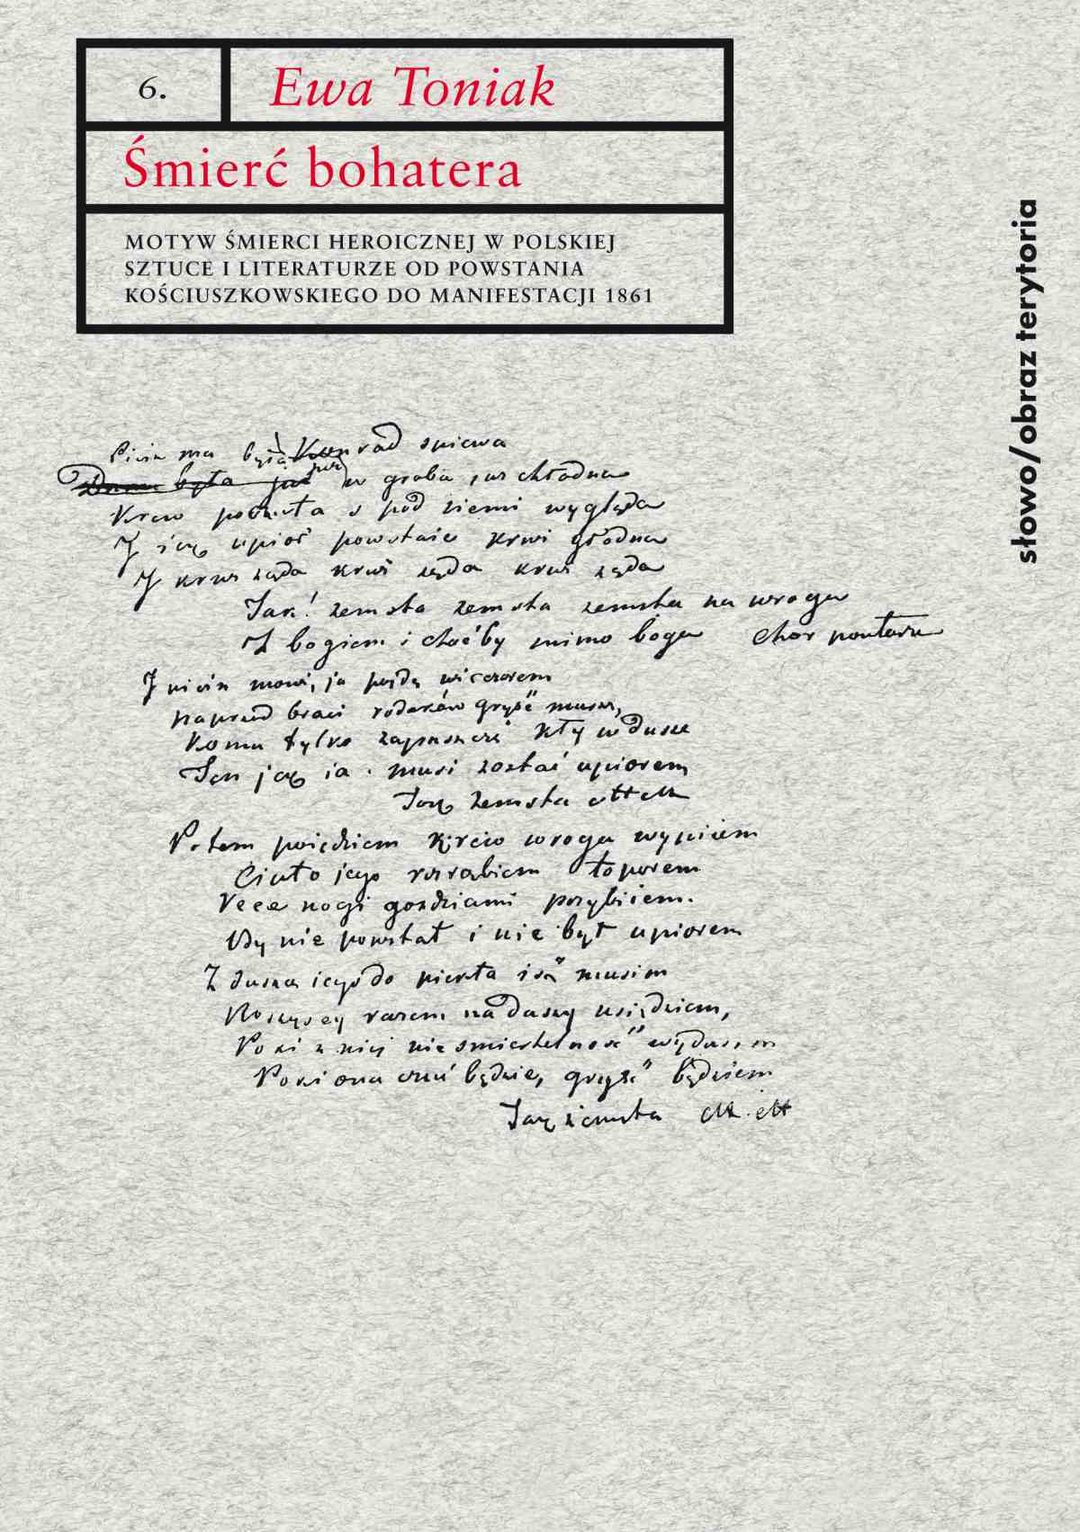 6.
Ewa Toniak
Śmierć bohatera
MOTYW ŚMIERCI HEROICZNEJ W POLSKIEJ
SZTUCE I LITERATURZE OD POWSTANIA
KOŚCIUSZKOWSKIEGO DO MANIFESTACJI 1861
słowo/obraz terytoria
ma Konrad spiewa
była już w grobie już chłodna
Krew poczuła s pod ziemi wygląda
I jak upior powstaie krwi głodna
I krwi ząda krwi ząda krwi ząda
Tak! zemsta zemsta zemsta na wroga
Z bogiem i choćby mimo boga Chor powtarza
I pieśń mowi, ja pójdę wieczorem
Naprzod braci rodaków gryść muszę,
Komu tylko zapuszczę kły w dusze
Ten jak ia musi zostać upiorem
Tak zemsta
Potem pojdziem krew wroga wypiiem
Ciało jego rozrąbiem toporem
Ręce nogi goździami przybiiem.
By nie powstał i nie był upiorem
Z duszą iego do piekła iść musim
Wszyscy razem na duszy usiędziem,
Poki z niej nieśmiertelność wydusim
Poki ona czuć będzie, gryść będziem
Tak zemsta